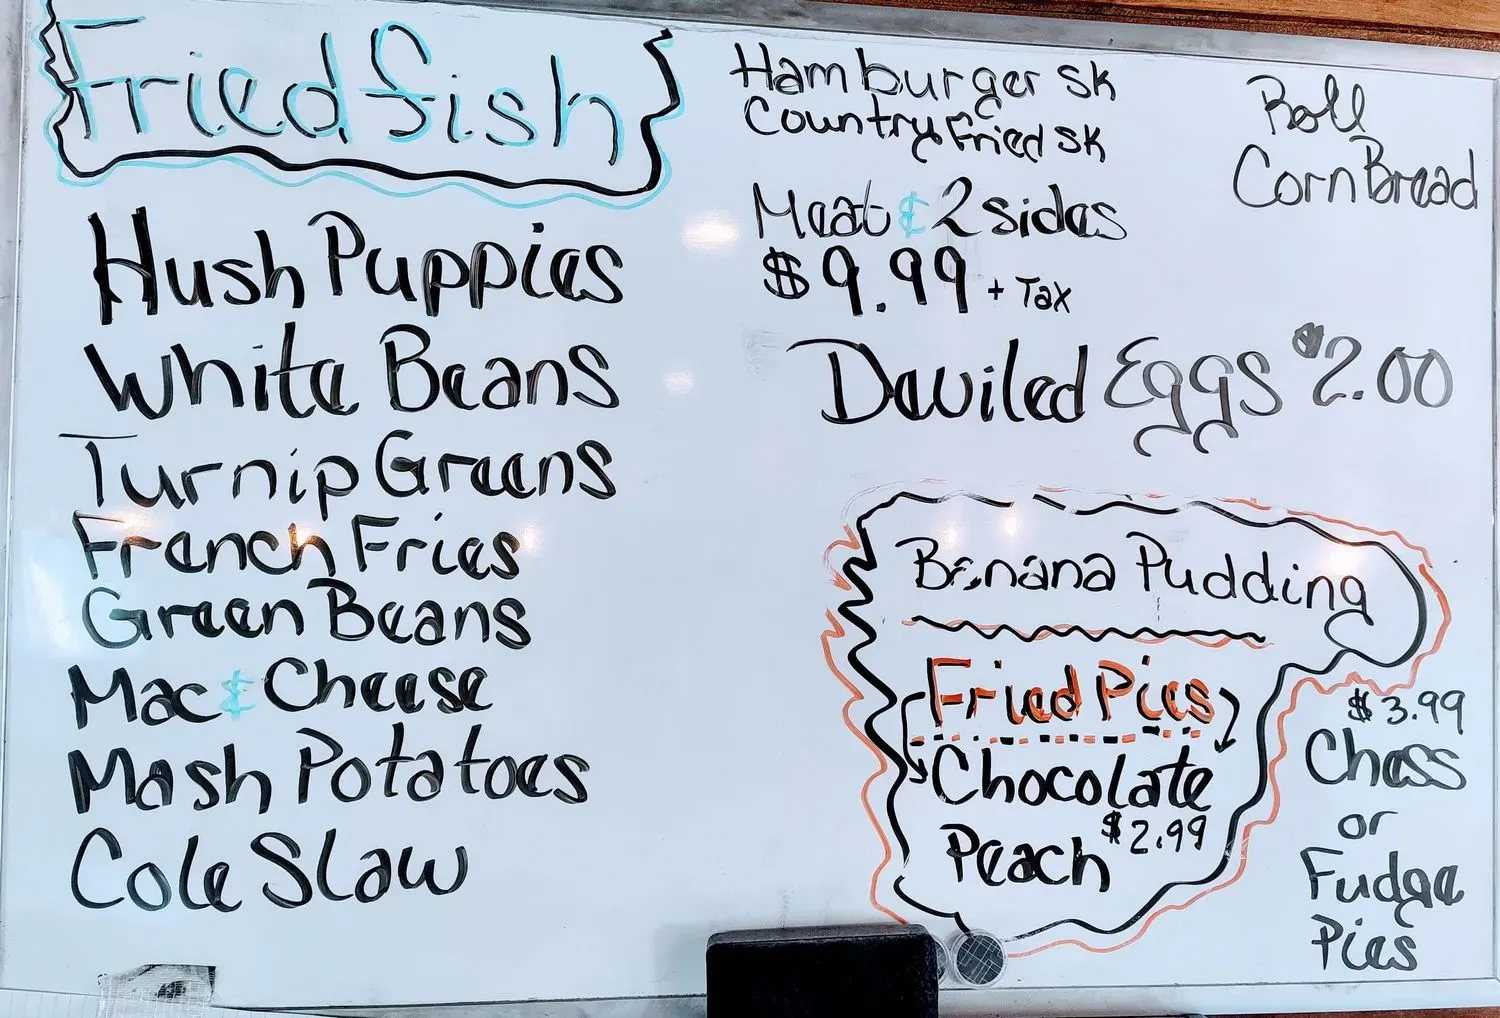 Fried fish
Hush Puppies
White Beans
Turnip Greens
French Fries
Green Beans
Mac & Cheese
Mash Potatoes
Cole Slaw
Hamburger SK
Country Fried SK
Meat & 2 sides
$9.99 + Tax
Roll
Corn Bread
Deviled Eggs $2.00
Banana Pudding
Fried Pies
Chocolate
Peach $2.99
$3.99
Chess
or
Fudge
Pies